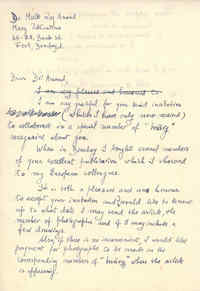 Dr Mulk Raj Anand
Marg Publications
Fort, Bombay 1
Dear Dr Anand,
I am very grateful for your kind invitation
(which I have only now received)
to collaborate in a special number of "Marg"
magazine about you.
When in Bombay I bought several numbers
of your excellent publication which I showed
to my European colleagues.
It is both a pleasure and an honour
to accept your invitation and would like to know
up to what date I may send the article, the
number of photographs and if I may include a
few drawings.
Also, if there is no inconvenient, I would like
payment for photographs to be made in the
corresponding number of "Marg" when the article
is appearing.